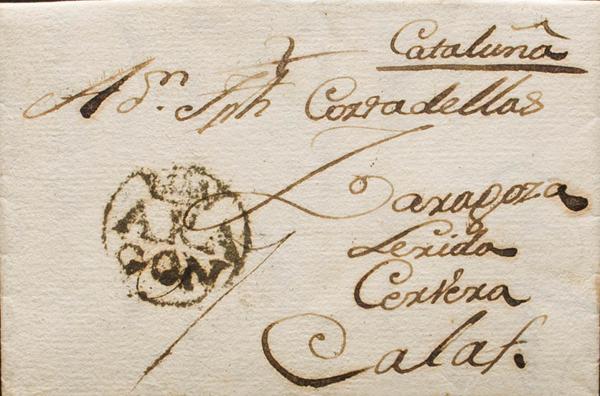 Cataluña
A dn. Jph Corradellas
Zaragoza
Lerida
Cervera
Calaf.